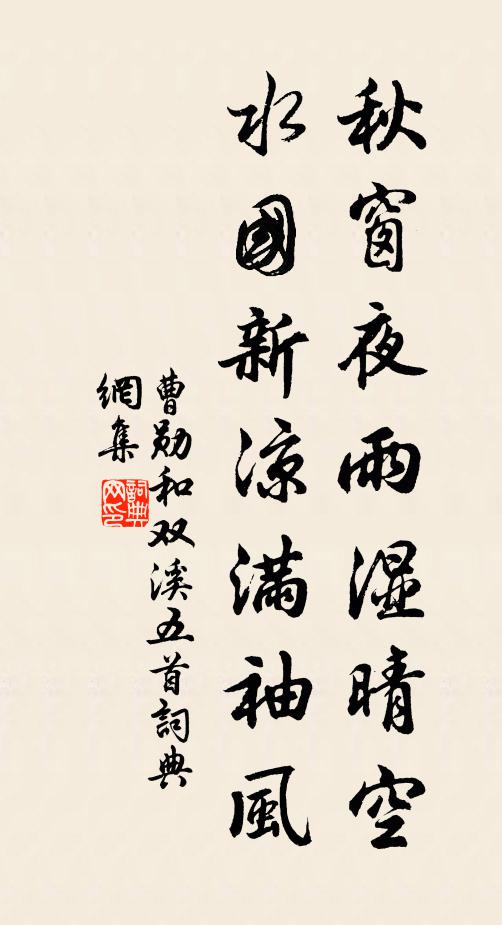 秋窗夜雨湿晴空
水國新凉滿袖風
曹勋和双溪五首詞典
網集
詞典
网印